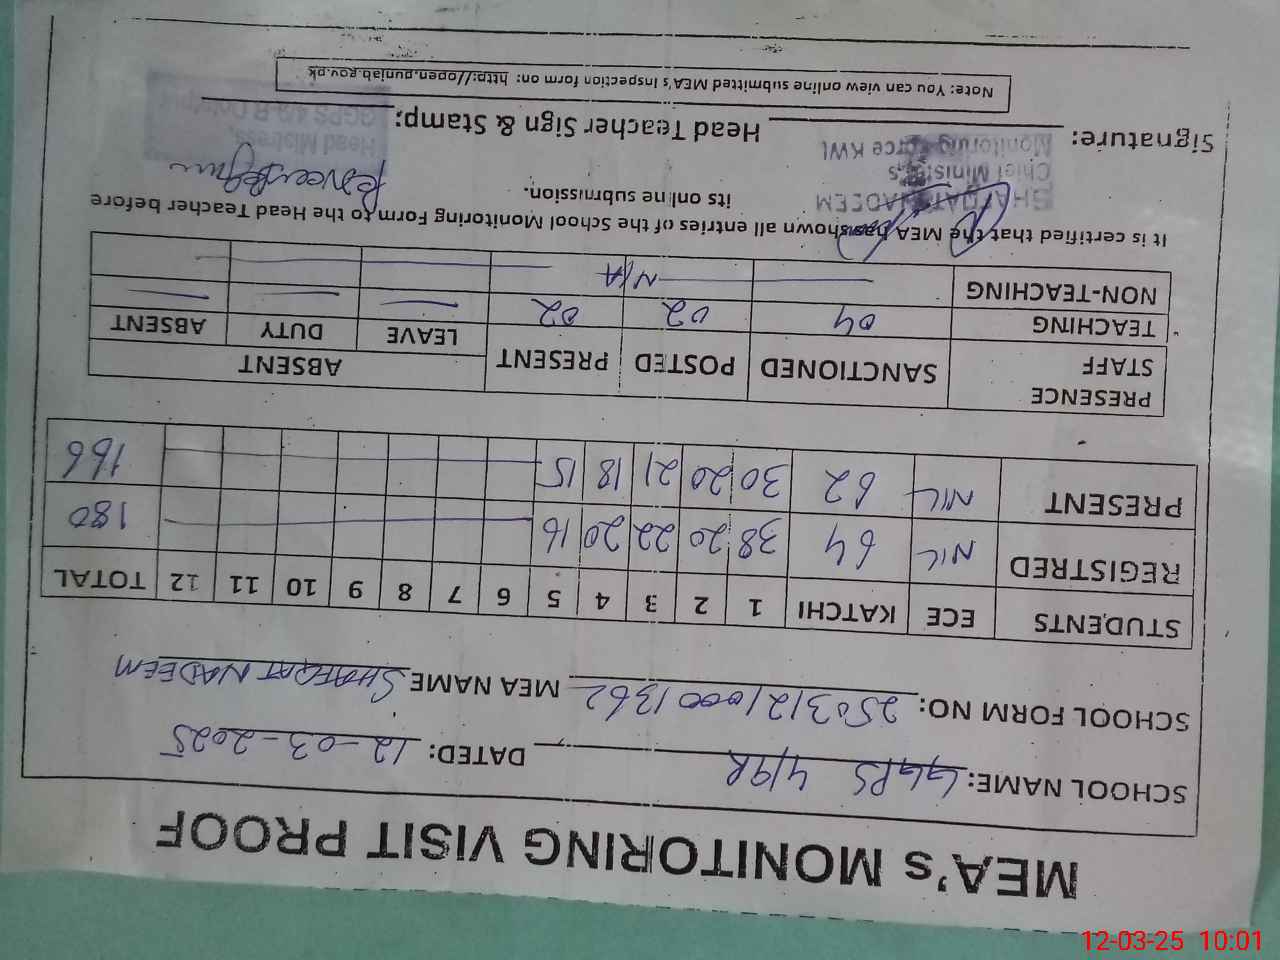 MEA's MONITORING VISIT PROOF
SCHOOL NAME: GGPS 4/9R DATED: 12-03-2025
SCHOOL FORM NO: 25031210001362 MEA NAME SHAFQAT NADEEM
STUDENTS ECE KATCHI 1 2 3 4 5 6 7 8 9 10 11 12 TOTAL
REGISTRED NIL 64 38 20 22 20 16 180
PRESENT NIL 62 30 20 21 18 15 166
PRESENCE STAFF SANCTIONED POSTED PRESENT ABSENT
LEAVE DUTY ABSENT
TEACHING 04 02 02
NON-TEACHING N/A
It is certified that the MEA has shown all entries of the School Monitoring Form to the Head Teacher before
its online submission.
SHAFQAT NADEEM
Chief Minister's
Monitoring Force KWL
Signature: Head Teacher Sign & Stamp:
Head Mistress,
GGPS 4/9-R
Note: You can view online submitted MEA's Inspection form on: http://open.punjab.gov.pk
12-03-25 10:01